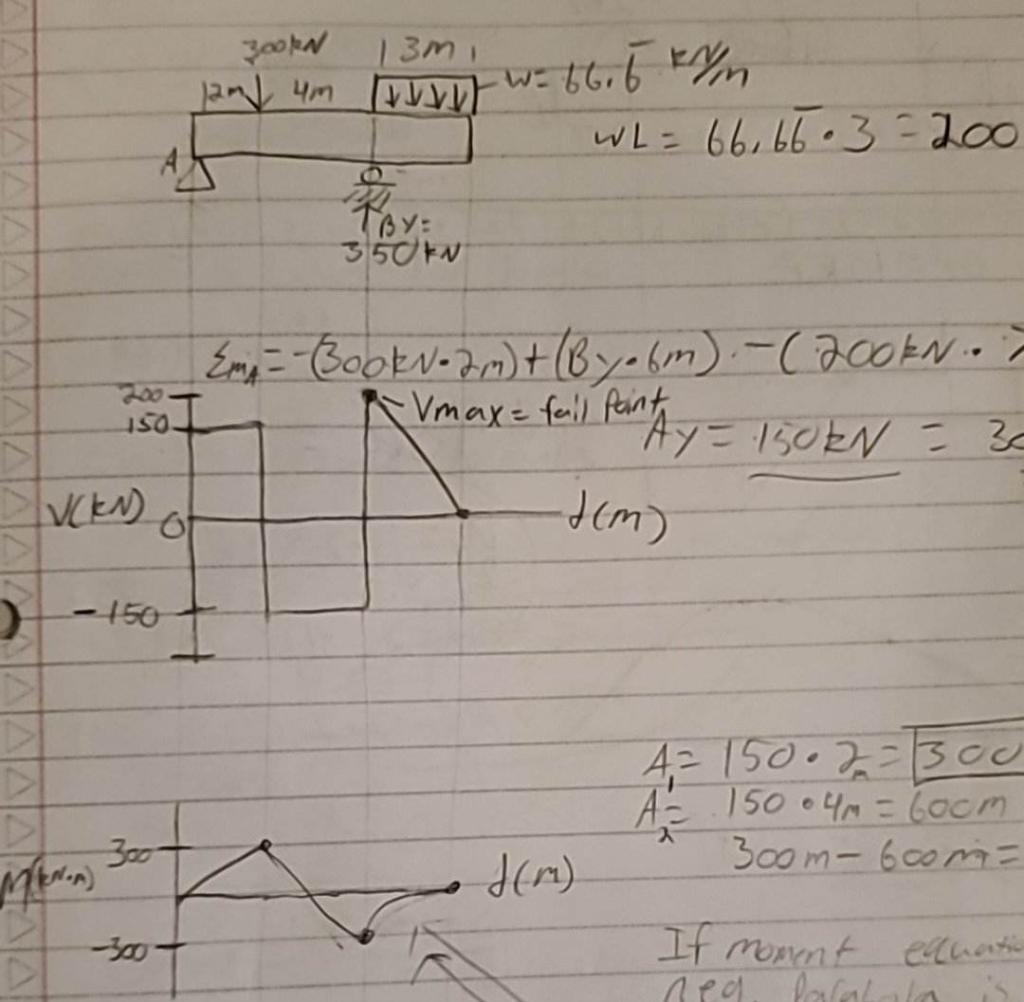 300kN |3m|
|2m 4m w= 66.6̅ kN/m
A WL = 66.66̅ • 3 = 200
By=
350kN
ΣmA = -(300kN•2m)+(By•6m) -(200kN•
200
150 Vmax = fail Point
Ay = 150kN = 30
V(kN) 0 d(m)
-150
A1 = 150 • 2m = 300
A2 = 150 • 4m = 600m
300 300m - 600m =
M(kN•m) d(m)
-300
If moment equatio
neg. Parabola is